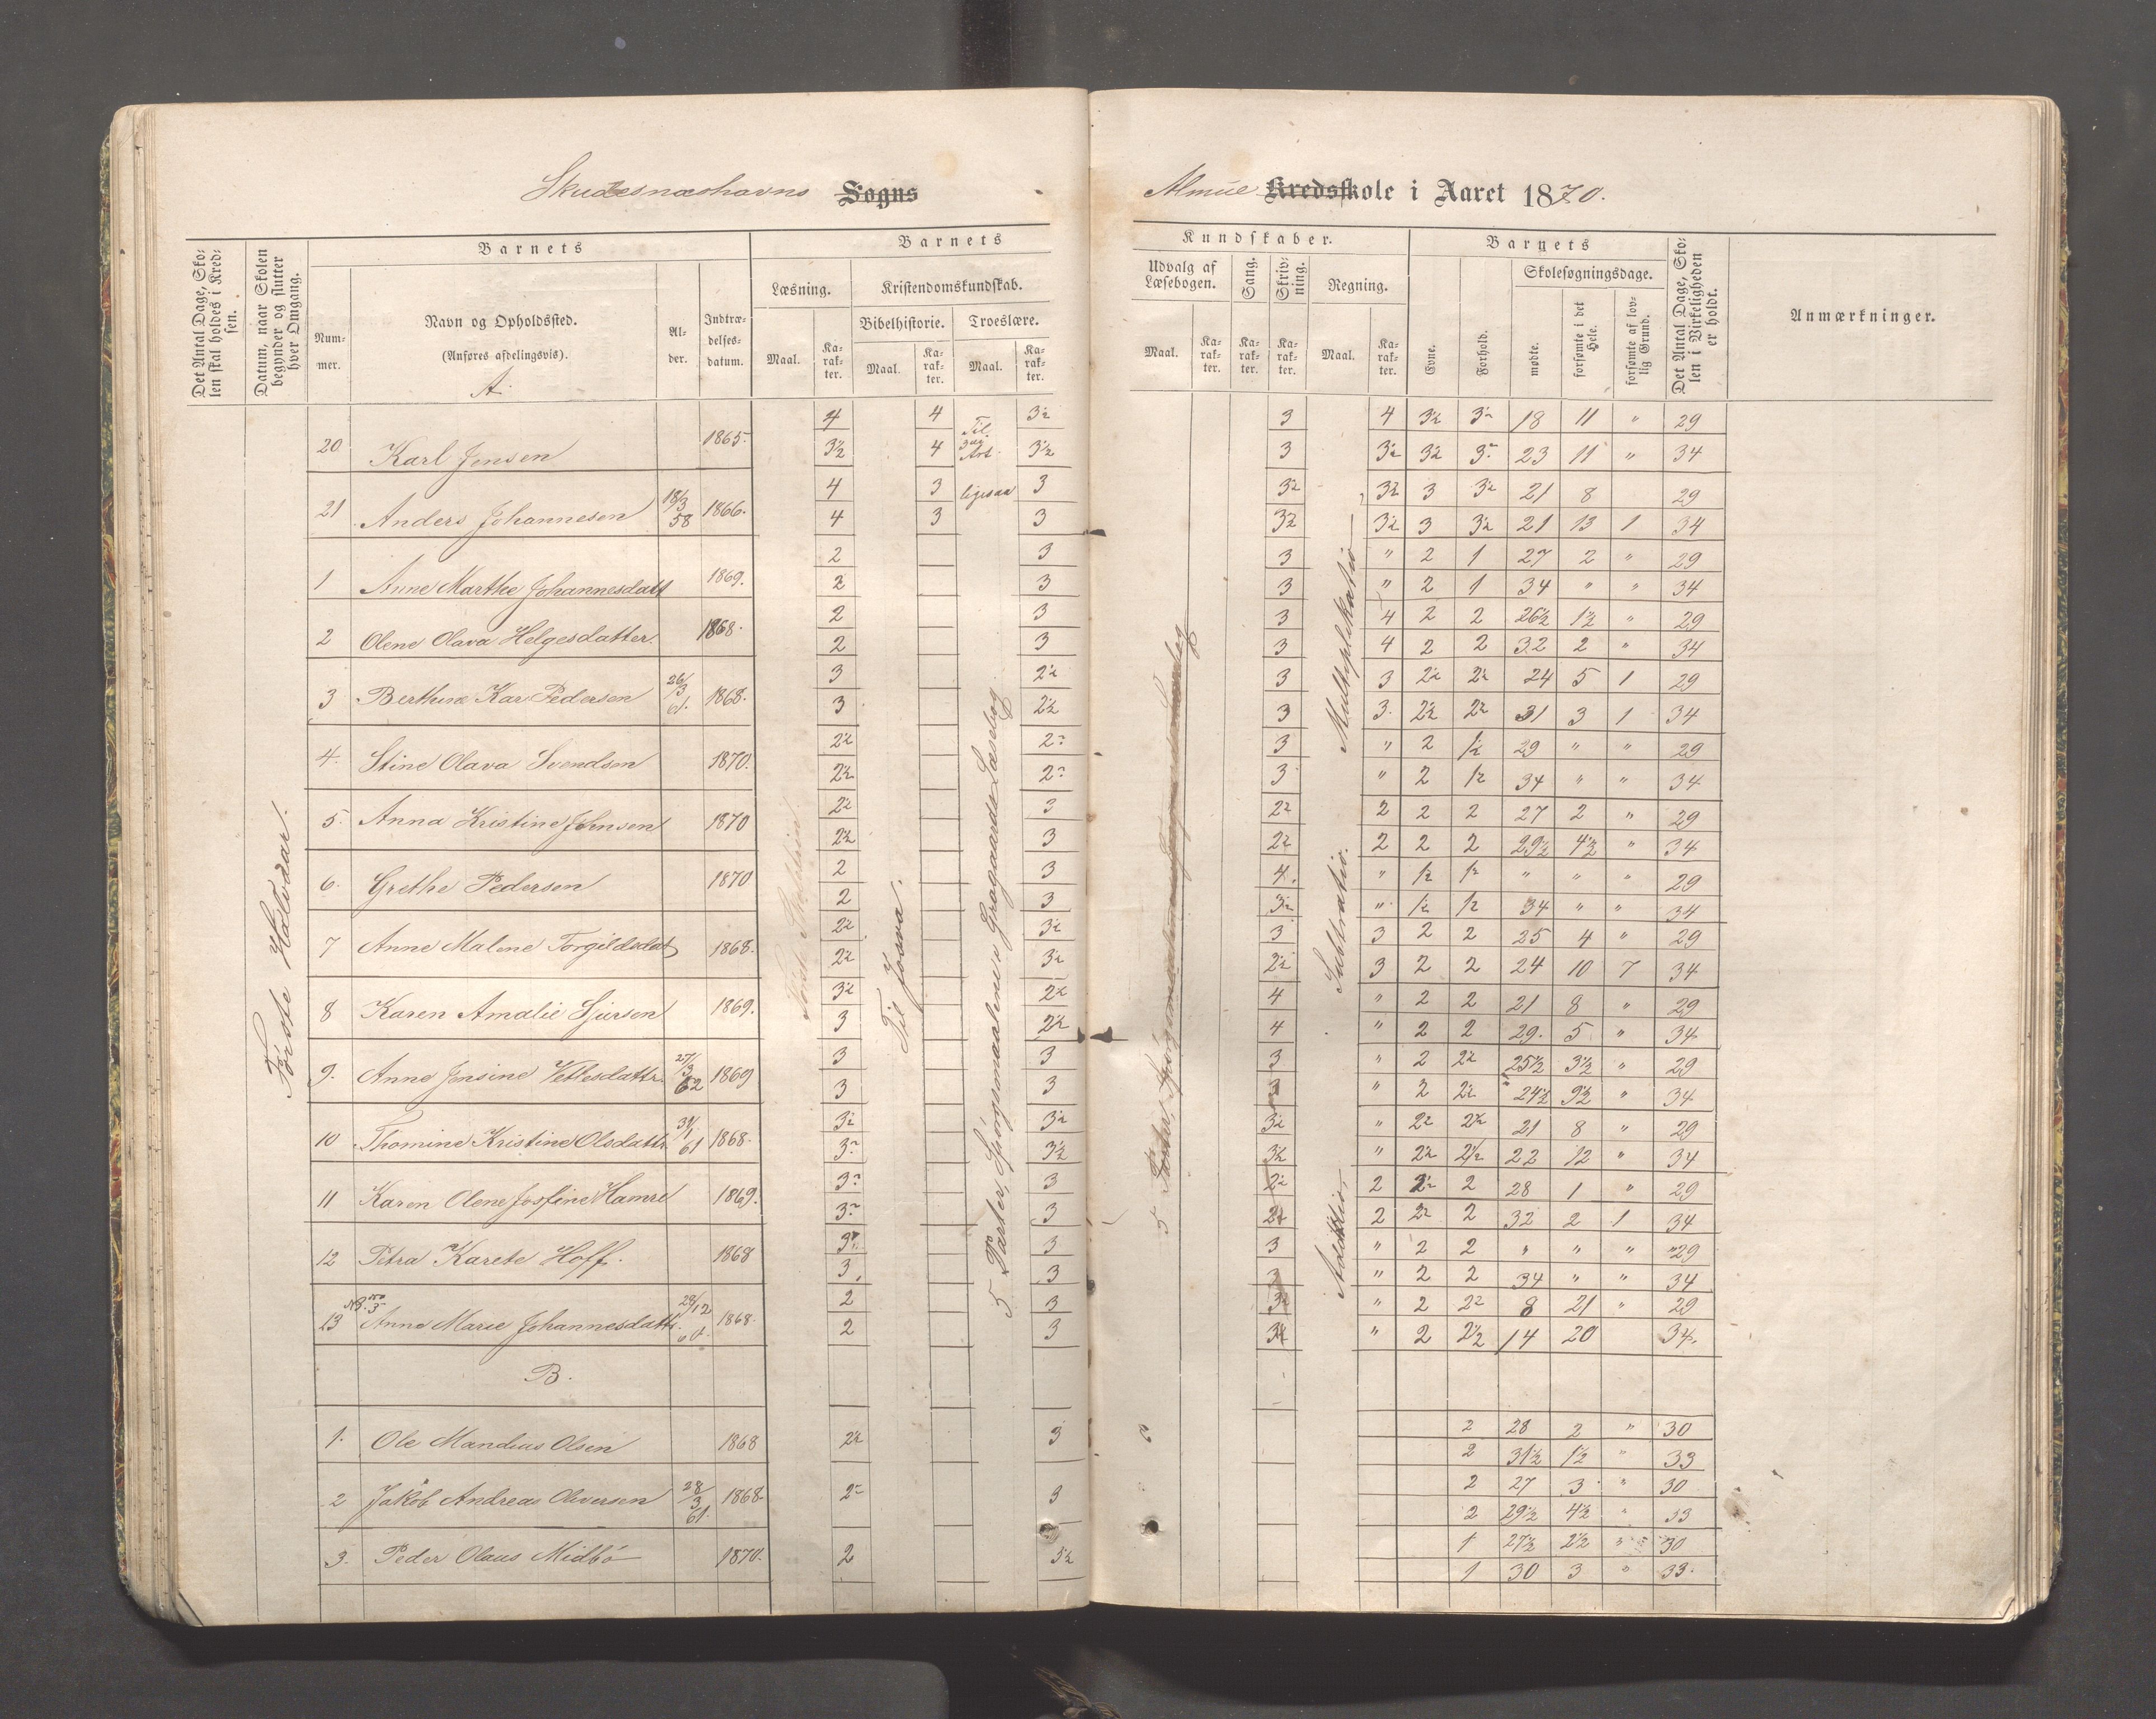 Skudesnæshavns Sogns
Almue Kredsskole i Aaret 1870.
Det Antal Dage, Skolen skal holdes i Kredsen.
Datum, naar Skolen begynder og slutter hver Omgang.
Barnets
Nummer.
Navn og Opholdssted.
(Anføres afdelingsvis).
Alder.
Indtrædelsesdatum.
Barnets
Læsning.
Maal.
Karakter.
Kristendomskundskab.
Bibelhistorie.
Maal.
Karakter.
Troeslære.
Maal.
Karakter.
Kundskaber.
Udvalg af Læsebogen.
Maal.
Karakter.
Sang.
Karakter.
Skrivning.
Karakter.
Regning.
Maal.
Karakter.
Barnets
Evne.
Forhold.
Skolesøgningsdage.
mødte.
forsømte i det Hele.
forsømte af lovlig Grund.
Det Antal Dage, Skolen i Virkeligheden er holdt.
Anmærkninger.
Første Halvdaar.
Til Josva.
5 Parter, Spörgsmaalene i Læsebog
Multiplikatio
Subtratio.
Addittio.
A.
4 4 3½ 3 4 3½ 3½ 18 11 " 29
20 Karl Jensen 1865. 3½ 4 Til 3die Art. 3½ 3 3½ 3½ 3½ 23 11 " 34
4 3 ligesaa 3 3½ 3½ 3 3½ 21 8 29
21 Anders Johannesen 18/3 58 1866. 4 3 3 3½ 3½ 3 3½ 21 13 1 34
2 3 3 " 2 1 27 2 " 29
1 Anne Marthe Johannesdatt 1869. 2 3 3 " 2 1 34 " " 34
2 3 3 4 2 2 26½ 1½ " 29
2 Olene Olava Helgesdatter. 1868. 2 3 3 4 2 2 32 2 " 34
3 2½ 3 3 2½ 2½ 24 5 1 29
3 Berthine Kar. Pedersen 26/3 61. 1868. 3 2½ 3 3. 2½ 2½ 31 3 1 34
2½ 2½ 3 " 2 1½ 29 " " 29
4. Stine Olava Svendsen 1870. 2½ 2½ 3 " 2 1½ 34 " " 34
2½ 3 2½ 2 2 2 27 2 " 29
5. Anna Kristine Johnsen 1870 2½ 3 2½ 2 2 2 29½ 4½ " 34
2 3 4. " 1½ 1½ " " " 29
6. Grethe Pedersen 1870 2 3 3½ " 1½ 1½ 34 " " 34
2½ 3½ 3 3 2 2 25 4 " 29
7 Anne Malene Torgildsdat 1868. 2½ 3½ 2½ 3 2 2 24 10 7 34
3½ 2½ 4 " 2 2 21 8 " 29
8 Karen Amalie Sjursen 1869. 3 2½ 4 " 2 2 29. 5 " 34
3 3 3 " 2 2½ 25½ 3½ " 29
9. Anne Jonsine Vetlesdattr. 27/3 62 1869 3 3 3 " 2 2½ 24½ 9½ " 34
3½ 3½ 3½ " 2½ 2½ 21 8 " 29
10 Thomine Kristine Olsdattr. 31/1 61 1868. 3½ 3½ 3½ " 2½ 2½ 22 12 " 34
3½ 3 2½ 2 2½ 2 28 1 " 29
11 Karen Olene Josfine Hamre 1869. 3½ 3 2½ 2 2½ 2 32 2 1 34
3½ 3 3 " 2 2 " " " 29
12 Petra Karete Hoff. 1868 3 3 3 " 2 2 34 " " 34
2 3 3½ " 2 2½ 8 21 " 29
13 NB. No 3 Anne Marie Johannesdattr. 28/12 60. 1868. 2 3 3½ " 2 2½ 14 20 34.
B.
2 28 2 " 30
1. Ole Mandius Olsen 1868 2½ 3 2 31½ 1½ " 33
2 27 3 " 30
2 Jakob Andreas Oliversen 28/3 61. 1868. 2½ 3 2 29½ 4½ " 33
1 27½ 2½ " 30
3. Peder Olaus Midbö 1870. 2 3½ 1 30 3 " 33.